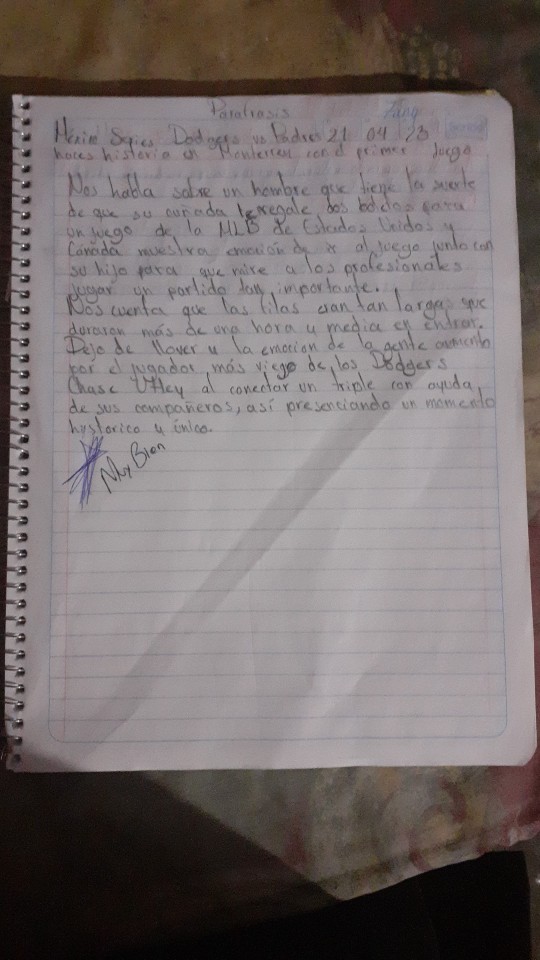 Parafrasis
México Series Dodgers vs Padres 21 04 23
haces historia en Monterrey con el primer Juego
Nos habla sobre un hombre que tiene la suerte
de que su cuñada le regale dos boletos para
un juego de la MLB de Estados Unidos y
Cánada muestra emoción de ir al juego junto con
su hijo para que mire a los profesionales
jugar un partido tan importante.
Nos cuenta que las filas eran tan largas que
duraron más de una hora y media en entrar.
Dejo de llover y la emocion de la gente aumento
por el jugador más viego de los Dodgers
Chase Utley al conectar un triple con ayuda
de sus compañeros, así presenciando un momento
hystorico y único.
Muy Bien